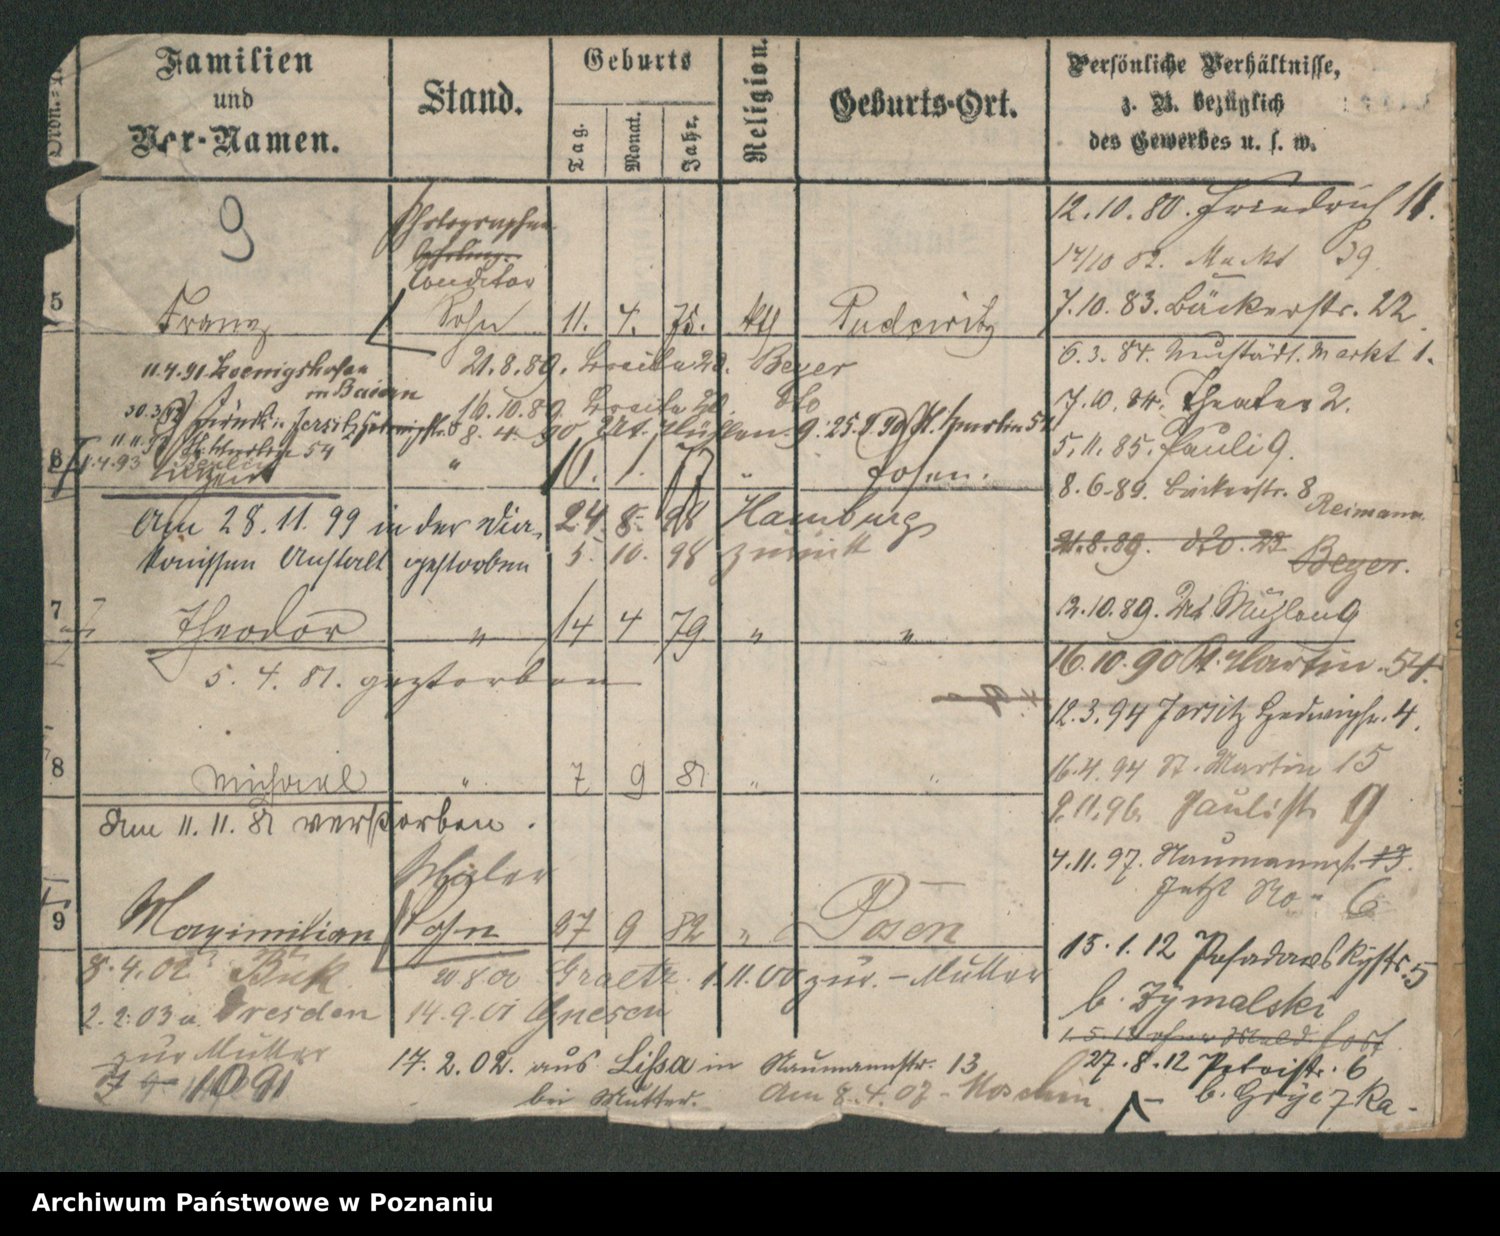 Familien
und
Vor-Namen.
Stand.
Geburts
Tag.
Monat.
Jahr.
Religion.
Geburts-Ort.
Persönliche Verhältnisse,
z. B. bezüglich
des Gewerbes u. s. w.
9
Photographen
Conditor
5 Franz Sohn 11. 4. 75. kth Pudewitz
21.8.89. Beyer
11.4.91 Koenigshofen
in Baiern
16.10.89. dto
8. 4. 90 Gr. Mühlen 9. 25.8.90 St. Martin 54
11.11.91 St. Martin 54
1.4.93
6 Vincent " 10. 1. 77 " Posen.
Am 28.11.99 in der Dia- 24. 8. 98 Hamburg
konissen Anstalt gestorben 5. 10. 98 zurück
7 Theodor " 14 4 79 " "
5. 4. 81. gestorben
8 Michael " 7 9 81 " "
Am 11. 11. 81 verstorben.
Maler
9 Maximilian Sohn 27 9 82 " Posen
8.4.02 Buk 20 8 00 Graetz 1.11.00 zur. - Mutter
2.2.03 a. Dresden 14.9.01 Gnesen
zur Mutter
17. 2. 02. aus Lissa in Naumannstr. 13
bei Mutter. Am 8.4.07 - Moschin
12.10.80. Friedrich 11.
17/10 82. Markt 39.
7.10.83. Bäckerstr. 22
6.3.84. Neustädt. Markt 1.
7.10.84. Theater 2.
5.11.85. Pauli 9.
8.6.89. Bäckerstr. 8
Reimann
21.8.89. dto. 23
Beyer.
12.10.89. Gr. Mühlen 9
16.10.90 St. Martin 54.
12.3.94 Jersitz Hedwigstr. 4.
16.4.94 St. Martin 15
9.11.96. Paulist. 9
4.11.97. Naumannst. 13.
Jetzt No 6
15.1.12 Posadowskystr. 5
b. Zymalski
27.8.12 Petristr. 6
Archiwum Państwowe w Poznaniu